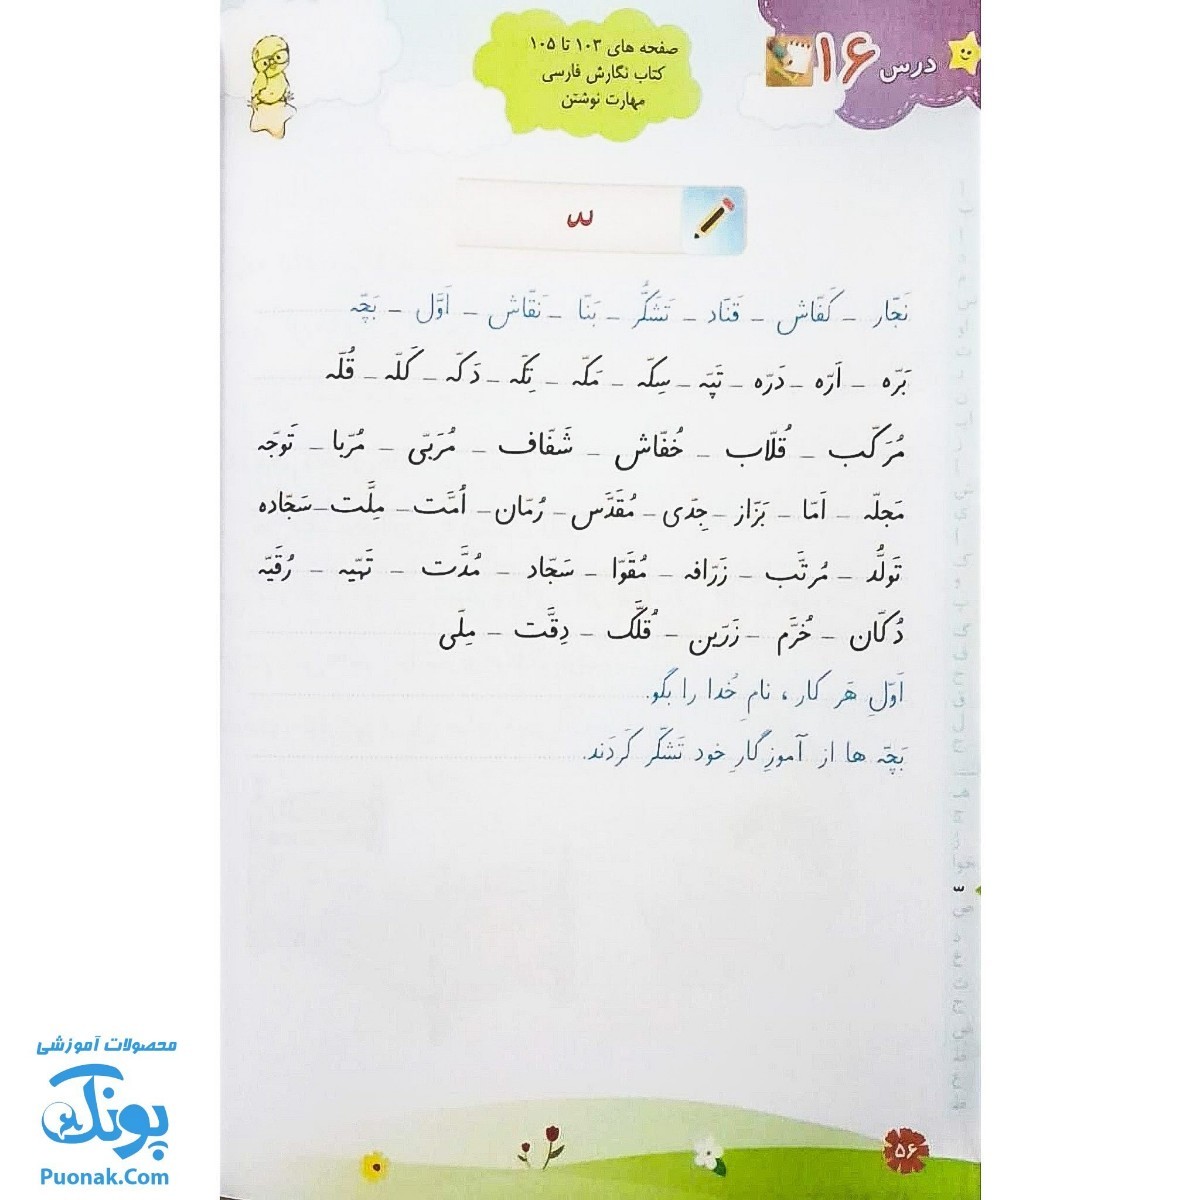 درس ۱۶
صفحه های ۱۰۳ تا ۱۰۵
کتاب نگارش فارسی
مهارت نوشتن
ّ
نَجّار – کَفّاش – قَنّاد – تَشَکُّر – بَنّا – نَقّاش – اَوَّل – بَچّه
بَرّه – اَرّه – دَرّه – تَپّه – سِکّه – مَکّه – تِکّه – دَکّه – کَلّه – قُلّه
مُرَکّب – قُلّاب – خُفّاش – شَفّاف – مُرَبّی – مُربّا – تَوجّه
مَجلّه – اَمّا – بَزّاز – جِدّی – مُقَدَّس – رُمّان – اُمَّت – مِلَّت – سَجّاده
تَولُّد – مُرتَّب – زَرّافه – مُقَوّا – سَجّاد – مُدَّت – تَهیّه – رُقَیّه
دُکّان – خُرَّم – زَرّین – قُلَّک – دِقَّت – مِلّی
اَوّلِ هَر کار ، نامِ خُدا را بگو.
بَچّه ها از آموزِگارِ خود تَشَکّر کَردَند.
۵۶
محصولات آموزشی
پونک
Puonak.Com